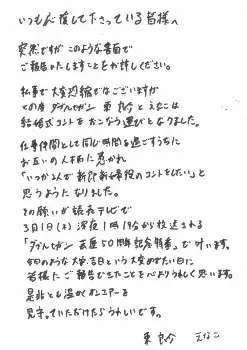 いつも応援して下さっている皆様へ
突然ですが このような書面で
ご報告いたしますことをお許しください。
私事で大変恐縮ではございますが
この度 ダブルセガン 東 良介 と えなこは
結婚式コントをおこなう運びとなりました。
仕事仲間として同じ時間を過ごすうちに
お互いの人柄に惹かれ
「いつか2人で新郎新婦役のコントをしたい」と
思うようになりました。
その願いが読売テレビで
3月1日(木)深夜1時19分から放送される
「ダブルセガン 50 特番」で叶います。
今日のような大安吉日という大変めでたい日に
皆様にご報告できたことを心よりうれしく思います。
是非とも温かくオンエアーを
見守っていただけたらうれしいです。
東 良介 えなこ